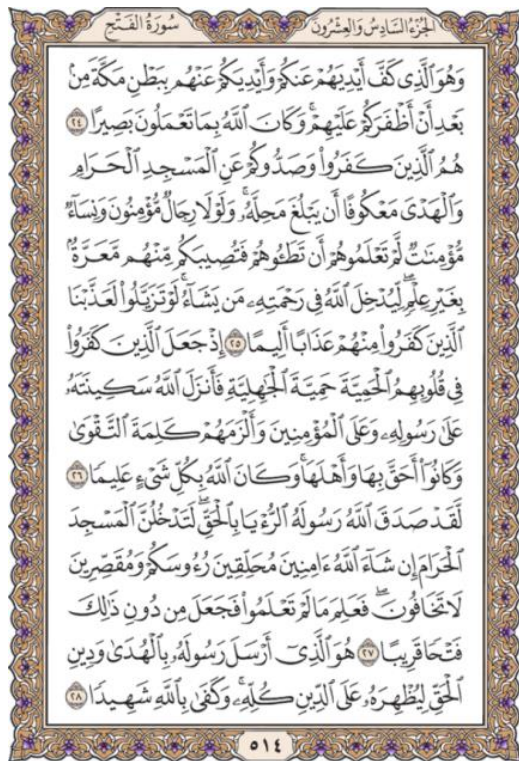 الجزء السادس والعشرون
سورة الفتح
وَهُوَ ٱلَّذِي كَفَّ أَيۡدِيَهُمۡ عَنكُمۡ وَأَيۡدِيَكُمۡ عَنۡهُم بِبَطۡنِ مَكَّةَ مِنۢ
بَعۡدِ أَنۡ أَظۡفَرَكُمۡ عَلَيۡهِمۡۚ وَكَانَ ٱللَّهُ بِمَا تَعۡمَلُونَ بَصِيرًا ٢٤
هُمُ ٱلَّذِينَ كَفَرُواْ وَصَدُّوكُمۡ عَنِ ٱلۡمَسۡجِدِ ٱلۡحَرَامِ
وَٱلۡهَدۡيَ مَعۡكُوفًا أَن يَبۡلُغَ مَحِلَّهُۥۚ وَلَوۡلَا رِجَالٞ مُّؤۡمِنُونَ وَنِسَآءٞ
مُّؤۡمِنَٰتٞ لَّمۡ تَعۡلَمُوهُمۡ أَن تَطَـُٔوهُمۡ فَتُصِيبَكُم مِّنۡهُم مَّعَرَّةُۢ
بِغَيۡرِ عِلۡمٖۖ لِّيُدۡخِلَ ٱللَّهُ فِي رَحۡمَتِهِۦ مَن يَشَآءُۚ لَوۡ تَزَيَّلُواْ لَعَذَّبۡنَا
ٱلَّذِينَ كَفَرُواْ مِنۡهُمۡ عَذَابًا أَلِيمًا ٢٥ إِذۡ جَعَلَ ٱلَّذِينَ كَفَرُواْ
فِي قُلُوبِهِمُ ٱلۡحَمِيَّةَ حَمِيَّةَ ٱلۡجَٰهِلِيَّةِ فَأَنزَلَ ٱللَّهُ سَكِينَتَهُۥ
عَلَىٰ رَسُولِهِۦ وَعَلَى ٱلۡمُؤۡمِنِينَ وَأَلۡزَمَهُمۡ كَلِمَةَ ٱلتَّقۡوَىٰ
وَكَانُوٓاْ أَحَقَّ بِهَا وَأَهۡلَهَاۚ وَكَانَ ٱللَّهُ بِكُلِّ شَيۡءٍ عَلِيمٗا ٢٦
لَّقَدۡ صَدَقَ ٱللَّهُ رَسُولَهُ ٱلرُّءۡيَا بِٱلۡحَقِّۖ لَتَدۡخُلُنَّ ٱلۡمَسۡجِدَ
ٱلۡحَرَامَ إِن شَآءَ ٱللَّهُ ءَامِنِينَ مُحَلِّقِينَ رُءُوسَكُمۡ وَمُقَصِّرِينَ
لَا تَخَافُونَۖ فَعَلِمَ مَا لَمۡ تَعۡلَمُواْ فَجَعَلَ مِن دُونِ ذَٰلِكَ
فَتۡحٗا قَرِيبًا ٢٧ هُوَ ٱلَّذِيٓ أَرۡسَلَ رَسُولَهُۥ بِٱلۡهُدَىٰ وَدِينِ
ٱلۡحَقِّ لِيُظۡهِرَهُۥ عَلَى ٱلدِّينِ كُلِّهِۦۚ وَكَفَىٰ بِٱللَّهِ شَهِيدٗا ٢٨
٥١٤